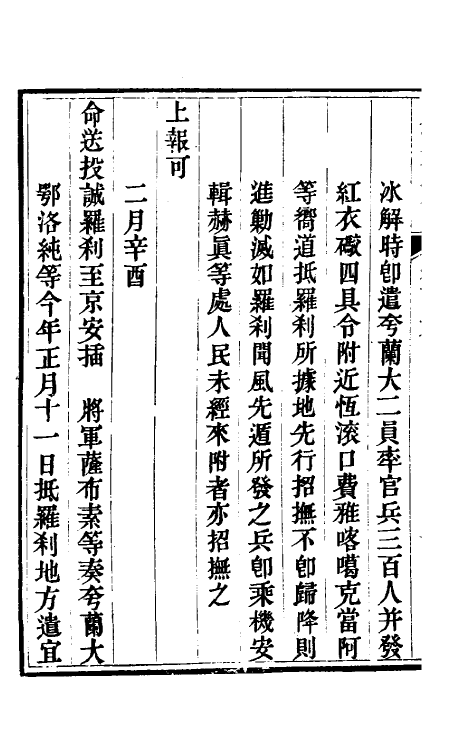 冰解時卽遣夸蘭大二員率官兵三百人幷發
紅衣礮四具令附近恆滾口費雅喀噶克當阿
等嚮道抵羅刹所據地先行招撫不卽歸降則
進勦滅如羅刹聞風先遁所發之兵卽乘機安
輯赫眞等處人民未經來附者亦招撫之
上報可
二月辛酉
命送投誠羅刹至京安插　將軍薩布素等奏夸蘭大
鄂洛純等今年正月十一日抵羅刹地方遣宜